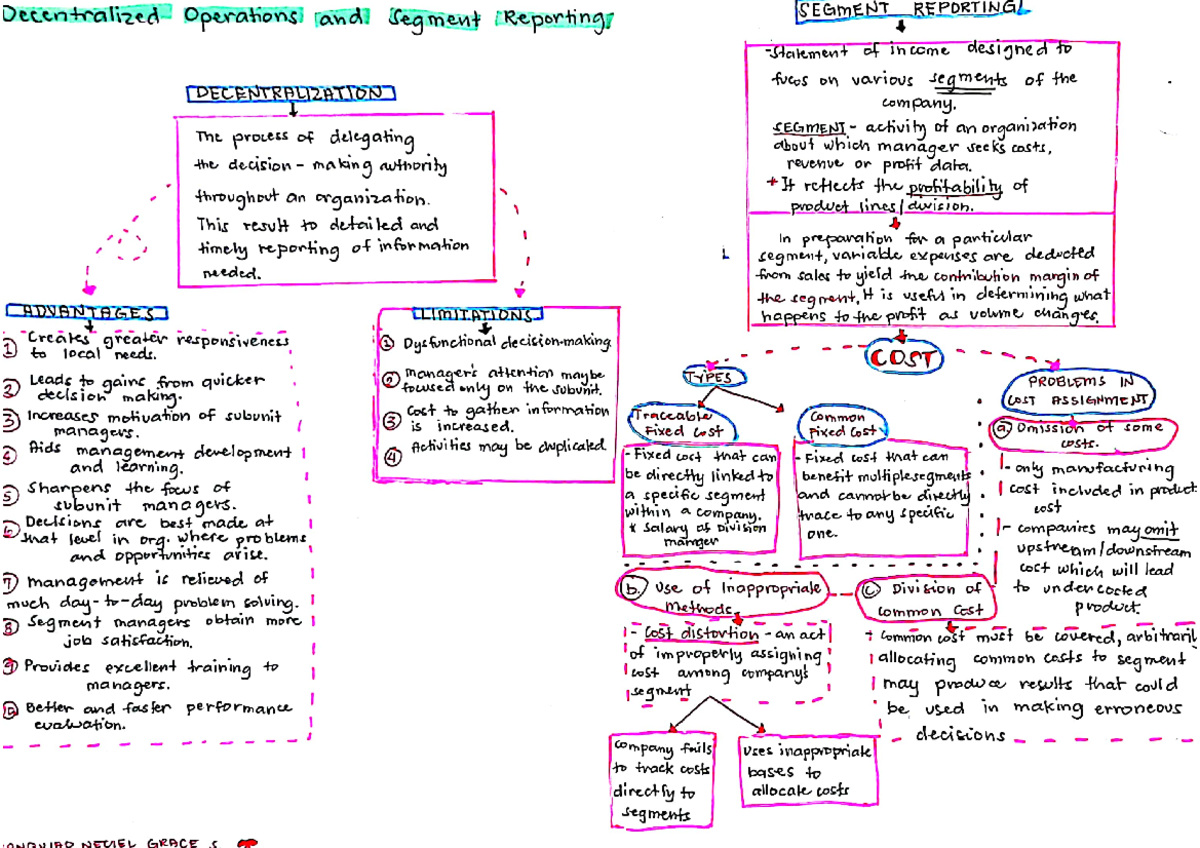 Decentralized Operations and Segment Reporting
DECENTRALIZATION
The process of delegating
the decision - making authority
throughout an organization.
This result to detailed and
timely reporting of information
needed.
ADVANTAGES
1 Creates greater responsiveness
to local needs.
2 Leads to gains from quicker
decision making.
3 Increases motivation of subunit
managers.
4 Aids management development
and learning.
5 Sharpens the focus of
subunit managers.
6 Decisions are best made at
that level in org. where problems
and opportunities arise.
7 management is relieved of
much day-to-day problem solving.
8 Segment managers obtain more
job satisfaction.
9 Provides excellent training to
managers.
10 Better and faster performance
evaluation.
LIMITATIONS
1 Dysfunctional decision-making.
2 Manager's attention maybe
focused only on the subunit.
3 Cost to gather information
is increased.
4 Activities may be duplicated
SEGMENT REPORTING
-Statement of income designed to
fucos on various segments of the
company.
SEGMENT - activity of an organization
about which manager seeks costs,
revenue or profit data.
+ It reflects the profitability of
product lines/division.
In preparation for a particular
segment, variable expenses are deducted
from sales to yield the contribution margin of
the segment. It is useful in determining what
happens to the profit as volume changes.
COST
TYPES
Traceable
Fixed Cost
- Fixed cost that can
be directly linked to
a specific segment
within a company.
* salary of division
manger
Common
Fixed Cost
- Fixed cost that can
benefit multiple segments
and cannot be directly
trace to any specific
one.
PROBLEMS IN
COST ASSIGNMENT
a) Omission of some
costs.
- only manufacturing
cost included in product
cost
- companies may omit
upstream/downstream
cost which will lead
to undercosted
product.
b. Use of Inappropriate
Methods.
- Cost distortion - an act
of improperly assigning
cost among company's
segment
Company fails
to track costs
directly to
segments
Uses inappropriate
bases to
allocate costs
c) Division of
common Cost
+ Common cost must be covered, arbitraril
allocating common costs to segment
may produce results that could
be used in making erroneous
decisions
NECIEL GRACE S.